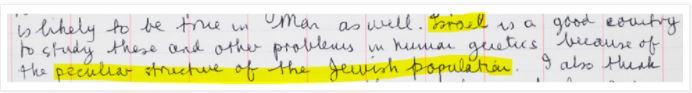 is likely to be true in Man as well. Israel is a good country
to study these and other problems in human genetics because of
the peculiar structure of the Jewish population. I also think